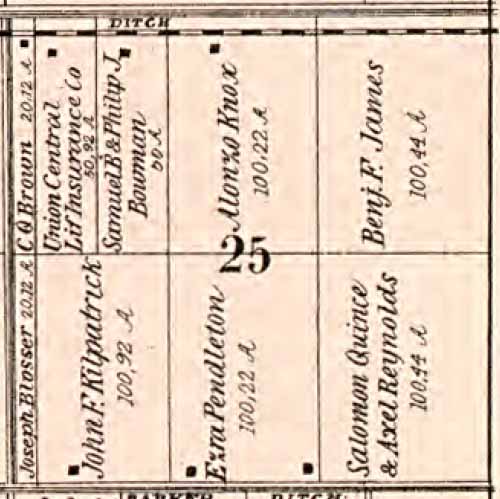 DITCH
C Q Brown 20.12 A
Union Central
Lif Insurance Co
50,92 A
Samuel B & Philip J.
Bowman
50 A
Alonzo Knox
100.22 A
Benj. F. James
100,44 A
25
Joseph Blosser 20.12 A
John F. Kilpatrick
100,92 A
Ezra Pendleton
100,22 A
Salomon Quince
& Axel Reynolds
100.44 A
DITCH